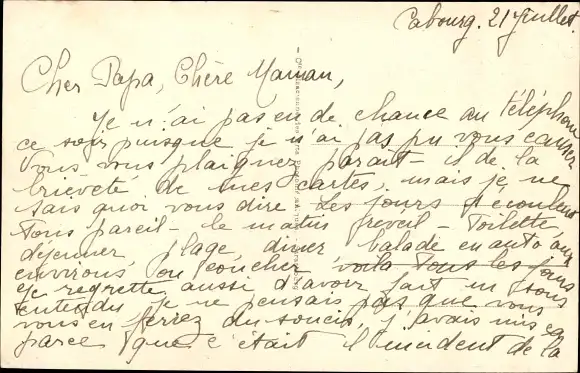 Cabourg. 21 Juillet.
Cher Papa, Chère Maman,
Je n'ai pas eu de chance au téléphone
ce soir puisque je n'ai pas pu vous causer
Vous vous plaignez paraît-il de la
brièveté de mes cartes, mais je ne
sais quoi vous dire - Les jours s'écoulent
tous pareil - le matin réveil - Toilette,
déjeuner, plage, dîner balade en auto aux
environs, ou coucher, voila tous les jours
Je regrette aussi d'avoir fait un sous
entendu je ne pensais pas que vous
vous en feriez du soucis, j'avais mis ça
parce que c'était l'incident de la